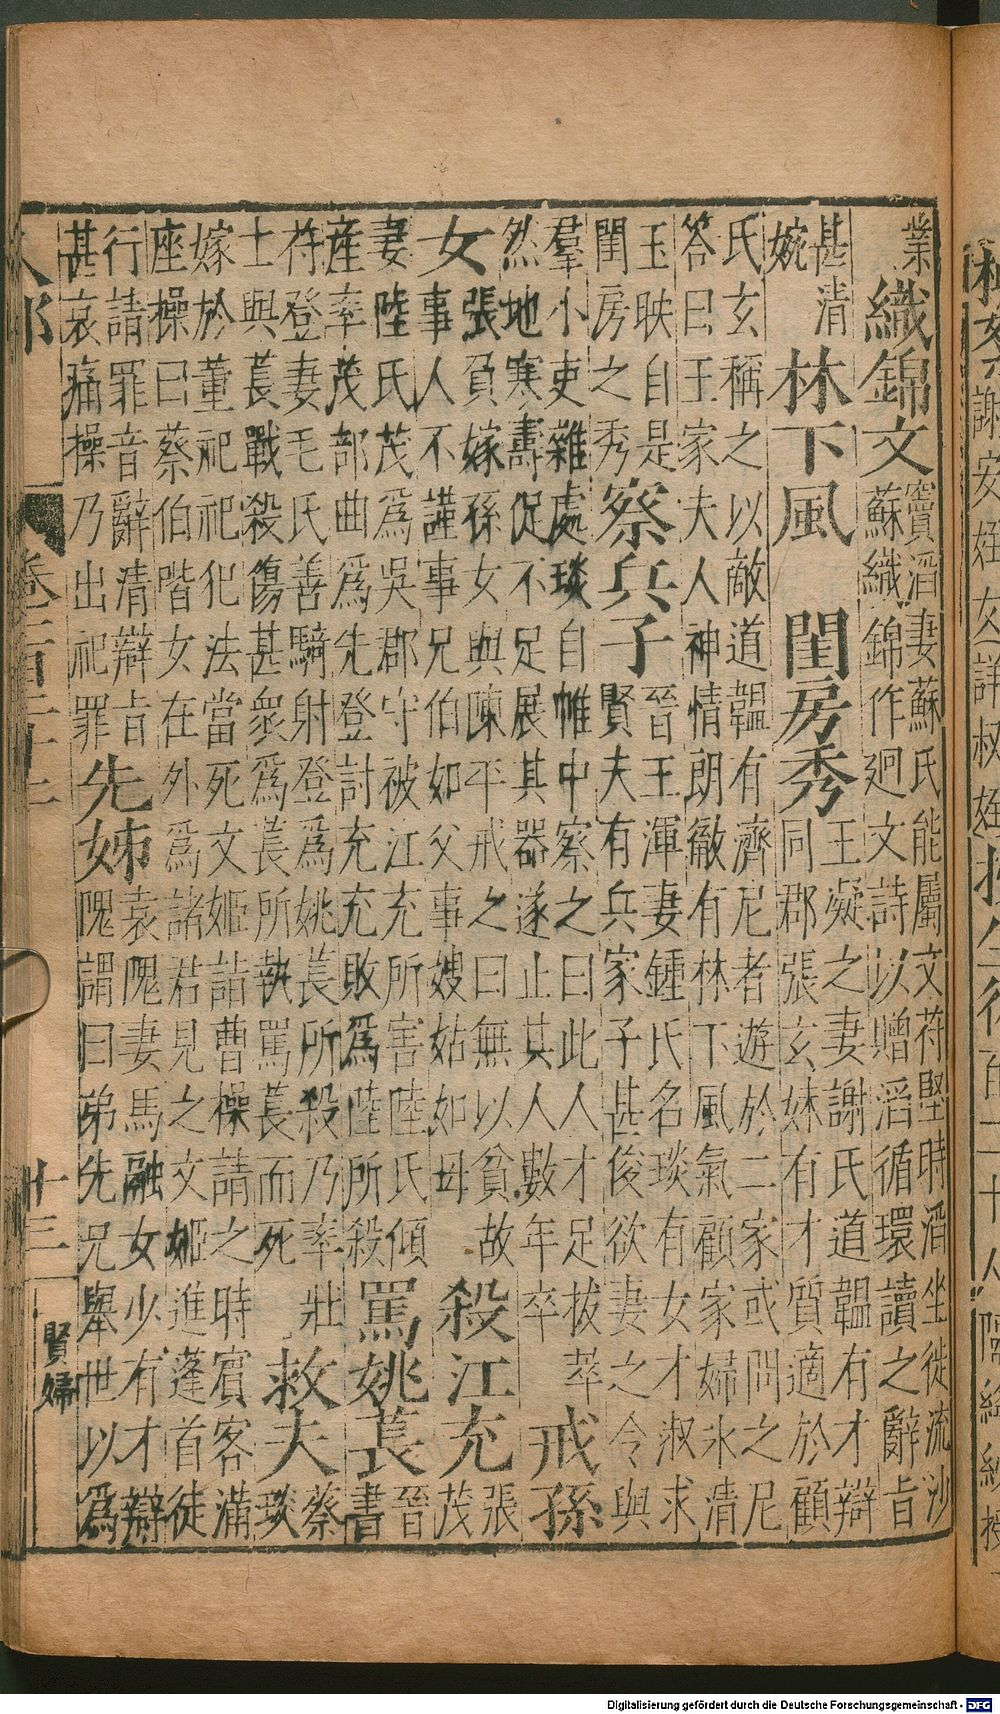 業
織錦文
竇滔妻蘇氏能屬文苻堅時滔坐徙流沙
蘇織錦作廻文詩以贈滔循環讀之辭旨
甚清
婉
林下風　閨房秀
王凝之妻謝氏道韞有才辯
同郡張玄妹有才質適於顧
氏玄稱之以敵道韞有濟尼者遊於二家或問之尼
答曰王家夫人神情朗徹有林下風氣顧家婦氷清
玉映自是
閨房之秀
察兵子
晉王渾妻鍾氏名琰有女才淑求
賢夫有兵家子甚俊欲妻之令與
羣小吏雜處琰自帷中察之曰此人才足拔萃
然地寒壽促不足展其器遂止其人數年卒
戒孫
女
張負嫁孫女與陳平戒之曰無以貧故
事人不謹事兄伯如父事嫂姑如母
殺江充
張
茂
妻陸氏茂為吳郡守被江充所害陸氏傾
產率茂部曲為先登討充充敗為陸所殺
罵姚萇
晉
書
苻登妻毛氏善騎射登為姚萇所殺乃率壯
士與萇戰殺傷甚衆為萇所執罵萇而死
救夫
蔡
琰
嫁於董祀祀犯法當死文姬詣曹操請之時賓客滿
座操曰蔡伯喈女在外為諸君見之文姬進蓬首徒
行請罪音辭清辯旨
甚哀痛操乃出祀罪
先姊
袁隗妻馬融女少有才辯
隗謂曰弟先兄舉世以為
十三
賢婦
Digitalisierung gefördert durch die Deutsche Forschungsgemeinschaft - DFG